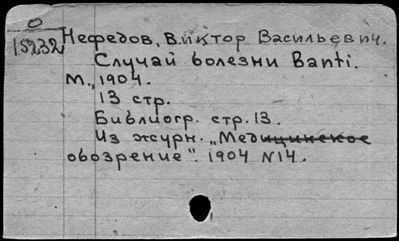 О
15232
Нефедов, Виктор Васильевич.
Случай болезни Banti.
М., 1904.
13 стр.
Библиогр. стр. 13.
Из журн. „Медицинское
обозрение". 1904 N14.